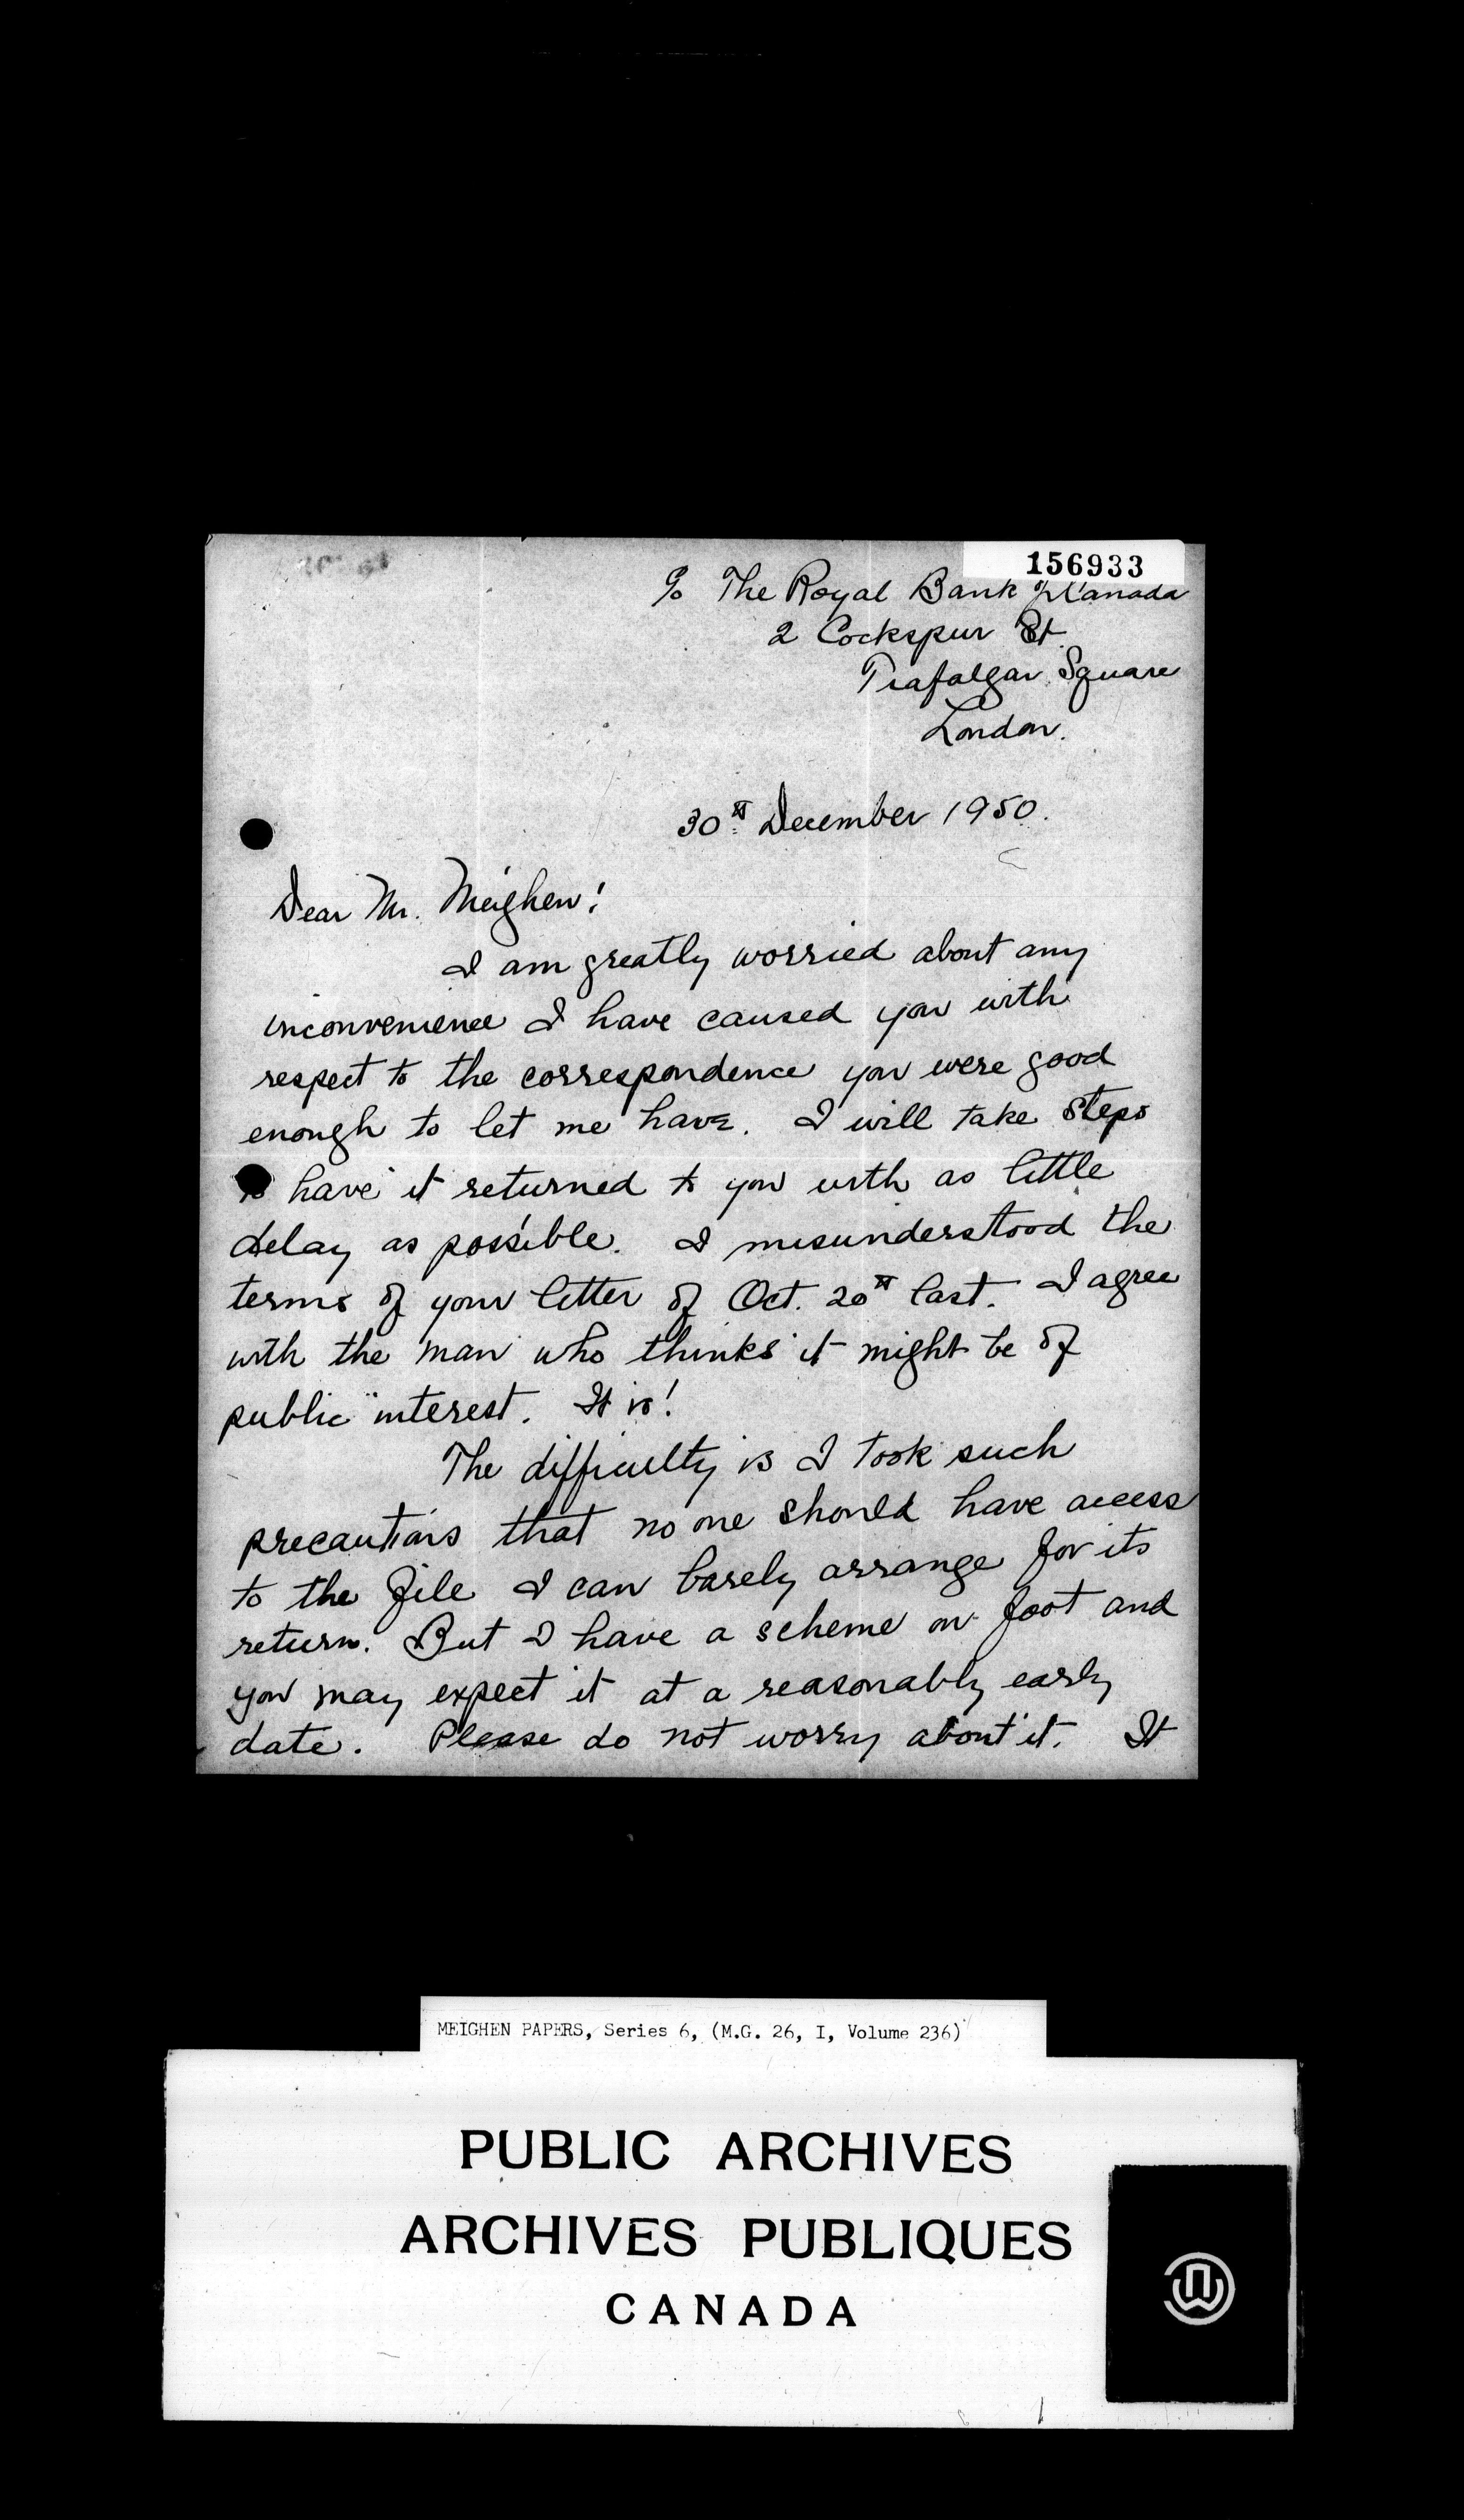 156933
c/o The Royal Bank of Canada
2 Cockspur St.
Trafalgar Square
London.
30th December 1950.
Dear Mr. Meighen:
I am greatly worried about any
inconvenience I have caused you with
respect to the correspondence you were good
enough to let me have. I will take steps
to have it returned to you with as little
delay as possible. I misunderstood the
terms of your letter of Oct. 20th last. I agree
with the man who thinks it might be of
public interest. It is!
The difficulty is I took such
precautions that no one should have access
to the file I can barely arrange for its
return. But I have a scheme on foot and
you may expect it at a reasonably early
date. Please do not worry about it. It
MEIGHEN PAPERS, Series 6, (M.G. 26, I, Volume 236)
PUBLIC ARCHIVES
ARCHIVES PUBLIQUES
CANADA